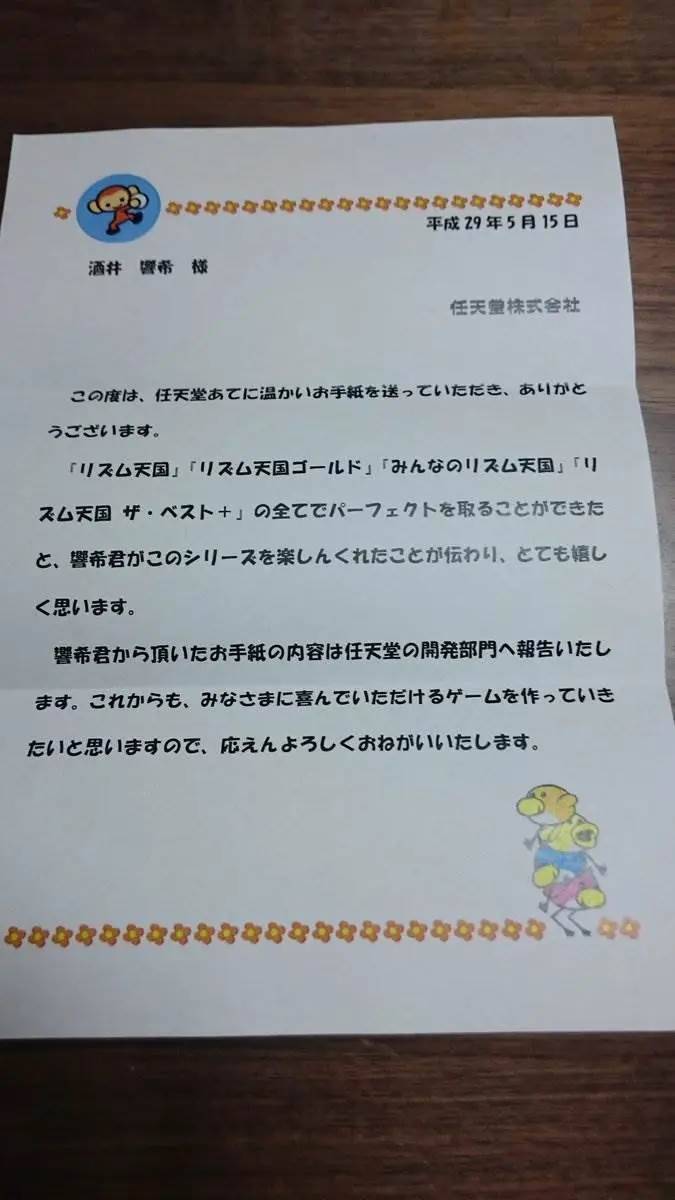 平成29年5月15日
酒井 響希 様
任天堂株式会社
この度は、任天堂あてに温かいお手紙を送っていただき、ありがと
うございます。
『リズム天国』『リズム天国ゴールド』『みんなのリズム天国』『リ
ズム天国 ザ・ベスト＋』の全てでパーフェクトを取ることができた
と、響希君がこのシリーズを楽しんくれたことが伝わり、とても嬉し
く思います。
響希君から頂いたお手紙の内容は任天堂の開発部門へ報告いたし
ます。これからも、みなさまに喜んでいただけるゲームを作っていき
たいと思いますので、応えんよろしくおねがいいたします。